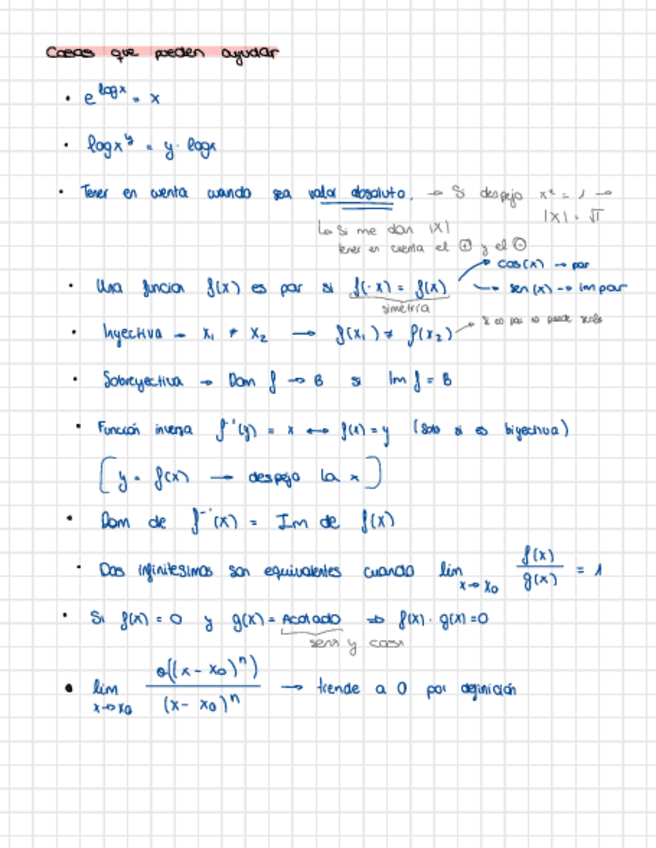 Cosas que pueden ayudar
• e^logx = x
• logx^y = y · logx
• Tener en cuenta cuando sea valor absoluto. → Si despejo x² = 1 →
|x| = √1
↳ Si me dan |x|
tener en cuenta el ⊕ y el ⊖
→ cos(x) → par
• Una funcion f(x) es par si f(-x) = f(x) → sen(x) → impar
simetría
• Inyectiva → x₁ ≠ x₂ → f(x₁) ≠ f(x₂) → Si es par no puede serlo
• Sobreyectiva → Dom f → B si Im f = B
• Función inversa f⁻¹(y) = x ↔ f(x) = y (Solo si es biyectiva)
[y = f(x) → despejo la x]
• Dom de f⁻¹(x) = Im de f(x)
• Dos infinitesimos son equivalentes cuando lim x→x₀ f(x)/g(x) = 1
• Si f(x) = 0 y g(x) = Acotado ⇒ f(x) · g(x) = 0
senx y cosx
• lim x→x₀ o((x - x₀)ⁿ)/(x - x₀)ⁿ → tiende a 0 por definición